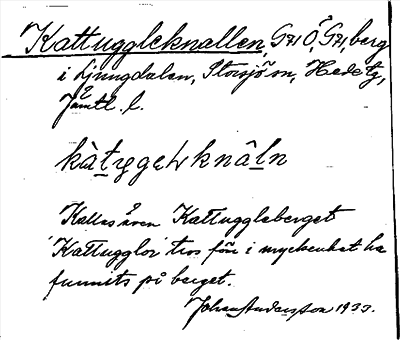 Kattuggleknallen, berg
i Ljungdalen, Storsjö sn,
Jämtl. l.
Kallas även Kattuggleberget
'Kattugglor' tros förr i myckenhet ha
funnits på berget.
Johan Andersson 1933.